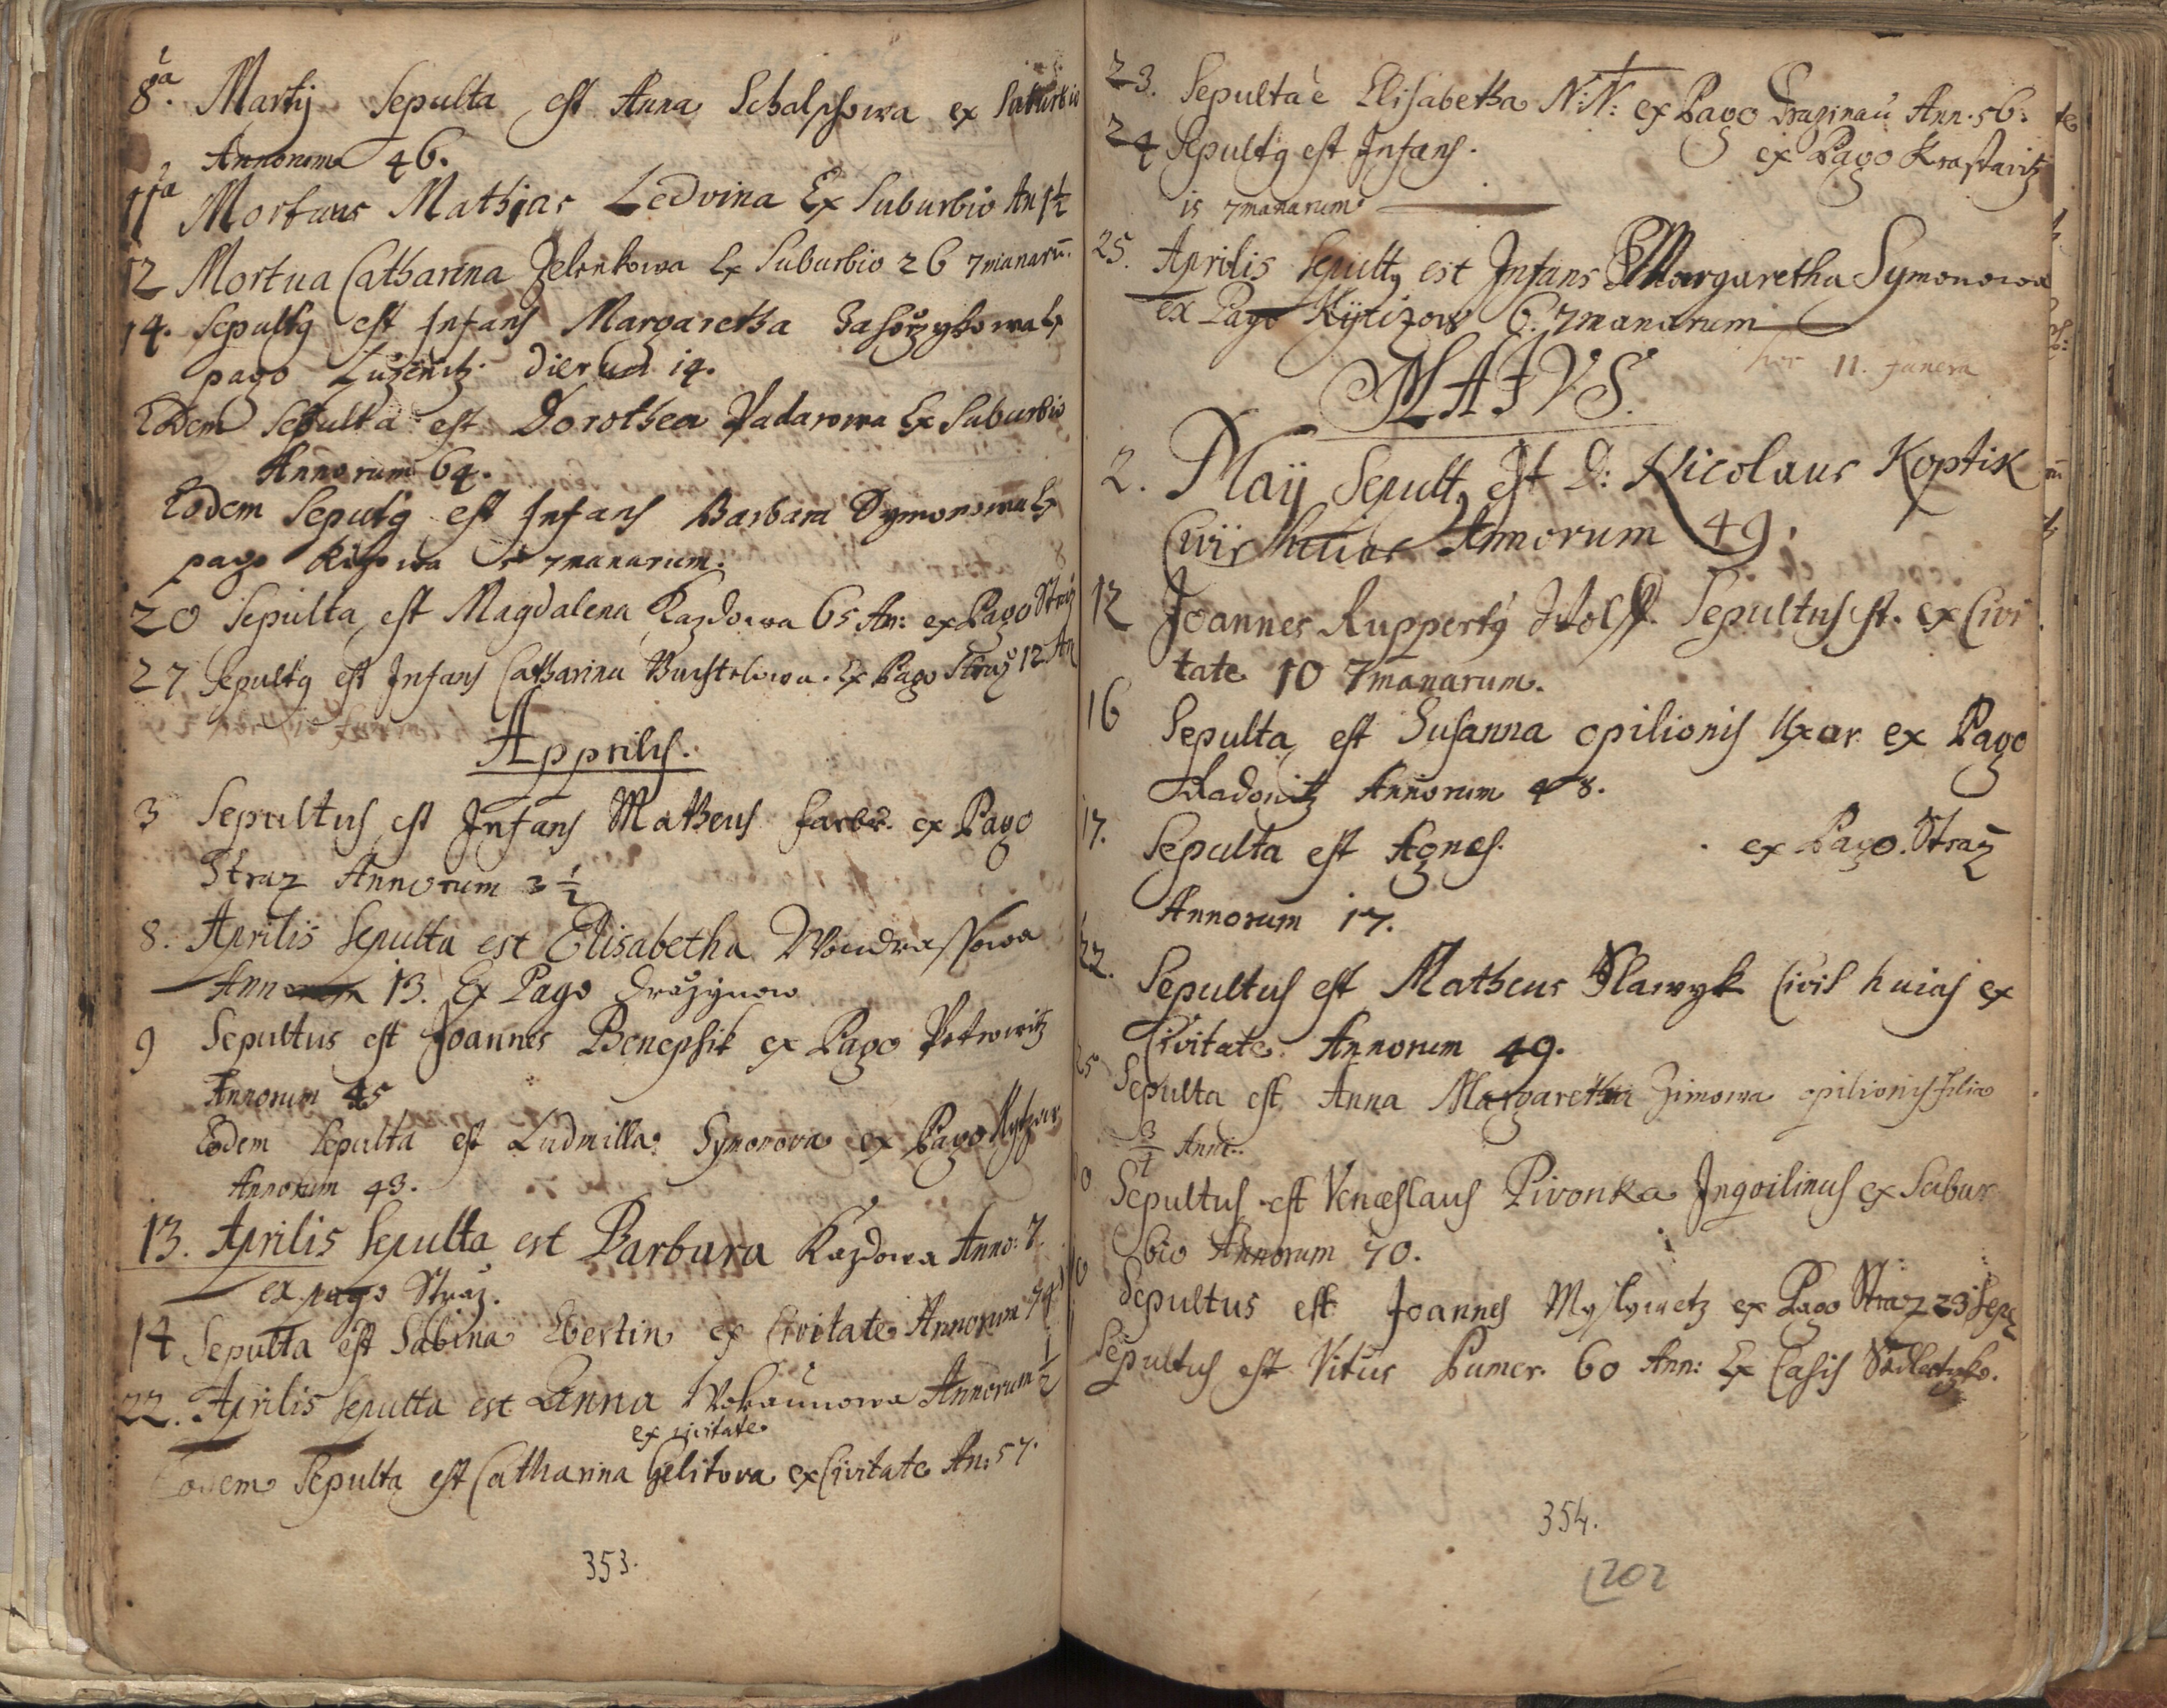 8ª. Martij Sepulta est Anna Schalschowa ex Suburbio
Annorum 46.
11ª Mortuus Mathias Ledvina Ex Suburbio An 1½
12 Mortua Catharina Zelenkowa Ex Suburbio 26 7manarũ.
14. Sepultq est Infans Margaretha Ex
pago Luženitz dierum 14.
Eodem Sepulta est Dorothea Padarowa Ex Suburbio
Annorum 64.
Eodem Sepultq est Infans Barbara Symonowa Ex
pago 7manarum.
20 Sepulta est Magdalena Kazdowa 65 An: ex Pago Straž
27 Sepultq est Infans Catharina Buchtelowa. Ex Pago Straž 12 An
Apprilis.
3 Sepultus est Infans Matheus farber. ex Pago
Straz Annorum 3½
8. Aprilis Sepulta est Elisabetha Wondrassowa
Annorum 13. Ex Pago Dražinow
9 Sepultus est Joannes Benepsik ex Pago Petrowitz
Annorum 45
Eodem Sepulta est Ludmilla Symonova ex Pago
Annorum 43.
13. Aprilis Sepulta est Barbara Kazdowa Anno: 7.
ex pago Straž.
14 Sepulta est Sabina Ebertin ex Civitate Annorum 74
22. Aprilis Sepulta est Anna Wokaunowa Annorum ½
ex civitate
Eodem Sepulta est Catharina Gelitova ex Civitate An: 57.
353.
23. Sepulta è Elisabetha N:N: ex Pago Draginau Ann. 56:
24 Sepultq est Infans. ex Pago Krastowitz
15 7manarum
25. Aprilis Sepultq est Infans Margaretha Symonowa
ex Pago Kytizow 6. 7manarum
hoc 11. funera
MAJVS.
2. Maÿ Sepultq Est D: Nicolaus Koptik
Civis huius Annorum 49.
12 Joannes Ruppertq Wolff. Sepultus est. ex Civi
tate 10 7manarum.
16 Sepulta est Susanna opilionis Uxor ex Pago
Radonitz Annorum 48.
17. Sepulta est Agnes. ex Pago. Straz
Annorum 17.
22. Sepultus est Matheus Hlawyk Civis huias ex
Civitate Annorum 49.
25 Sepulta est Anna Margaretha Zimowa opilionis filia
¾ Anni.
Sepultus est Venceslaus Pivonka Inqvilinus ex Subur
bio Annorum 70.
Sepultus est Joannes Myslywetz ex Pago Straz 23 Sep:
Sepultus est Vitus Pumer. 60 Ann: Ex Casis
354.
202